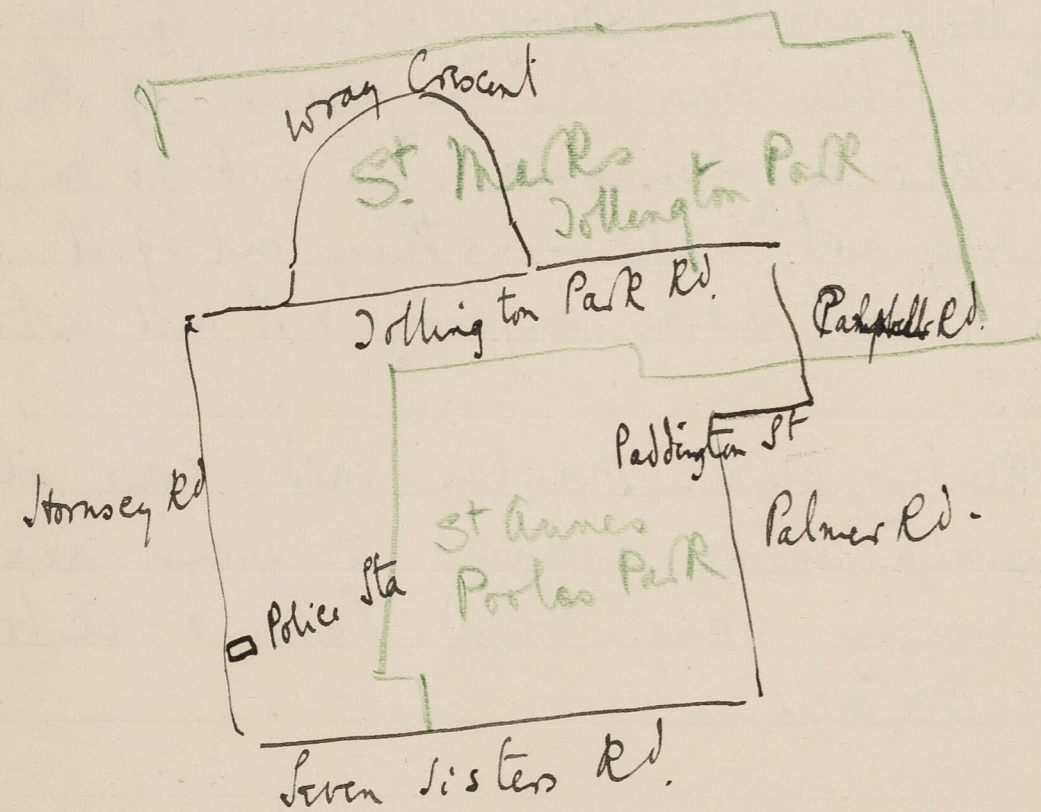 Wray Crescent
St. Marks
Tollington Park
Tollington Park Rd.
Campbell Rd.
Paddington St
Hornsey Rd
St Annes
Pooles Park
Palmer Rd.
Police Sta
Seven Sisters Rd.